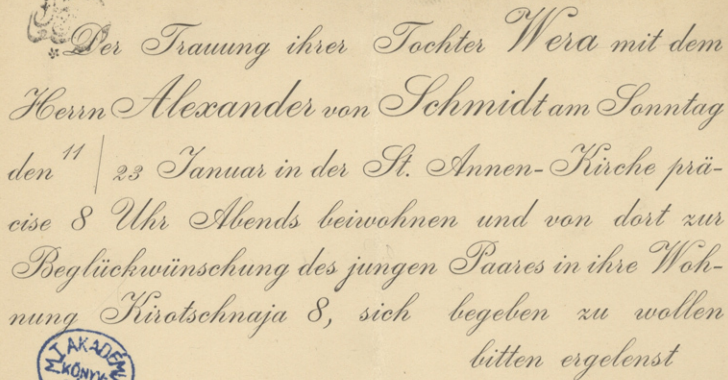 Der Trauung ihrer Tochter Wera mit dem
Herrn Alexander von Schmidt am Sonntag
den 11/23 Januar in der St. Annen-Kirche prä-
cise 8 Uhr Abends beiwohnen und von dort zur
Beglückwünschung des jungen Paares in ihre Woh-
nung Kirotschnaja 8, sich begeben zu wollen
bitten ergelenst
AKADÉM
KÖNYV